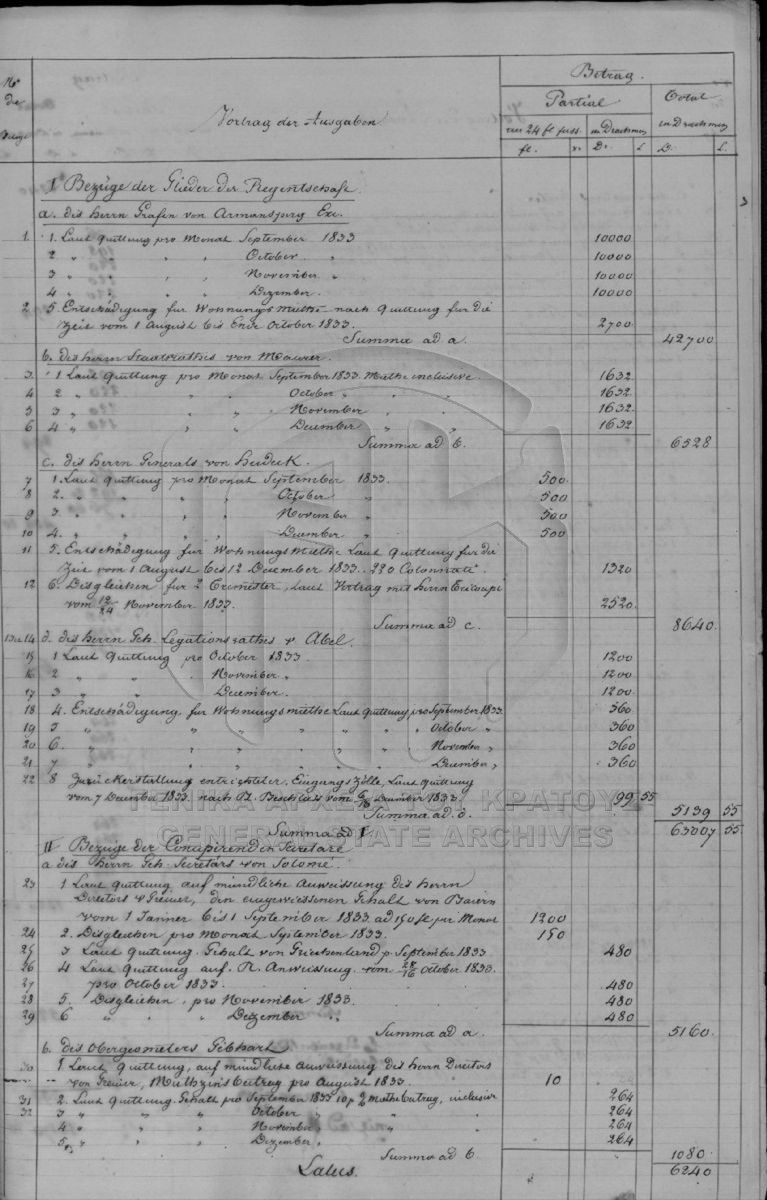 Betrag.
No der Beilage
Vortrag der Ausgaben
Partial
Total
im 24 fl fuss.
in Drachmen
in Drachmen
fl. xr Dr. L D. L.
I Bezüge der Glieder der Regentschaft.
a. des Herrn Grafen von Armansperg Exc.
1. 1. Laut Quittung pro Monat September 1833 10000
2 " " " " October " 10000
3 " " " " November " 10000
4 " " " " Dezember 10000
2 5. Entschädigung fur Wohnungsmiethe nach Quittung für die
Zeit vom 1 August bis Ende October 1833. 2700
Summa ad a. 42700
b. des Herrn Staatsrathes von Maurer.
3. 1 Laut Quittung pro Monat September 1833 Miethe inclusive. 1632
4 2 " " " October " " " 1632
5 3 " " " November " " 1632
6 4 " " " December " " 1632
Summa ad b. 6528
c. des Herrn Generals von Heideck.
7 1. Laut Quittung pro Monat September 1833. 500
8 2. " " " " October " 500
9 3 " " " " November " 500
10 4. " " " " December " 500
11 5. Entschädigung fur Wohnungsmiethe Laut Quittung fur die
Zeit vom 1 August bis 12 December 1833. 220 Colonnati. 1320
12 6. Desgleichen für 2 Trimester, Laut Vertrag mit Herrn
vom 12/24 November 1833. 2520
Summa ad c. 8640.
13 u 14 d. des Herrn Geh. Legationsrathes v Abel.
15 1 Laut Quittung pro October 1833. 1200
16 2 " " " November " 1200
17 3 " " " December. 1200
18 4. Entschädigung für Wohnungsmiethe Laut Quittung pro September 1833 360
19 5 " " " " " " October " 360
20 6. " " " " " " November " 360
21 7 " " " " " " December " 360
22 8 Zurückerstattung entrichteter Eingangszölle, Laut Quittung
vom 7 December 1833. nach R. Beschluss vom December 1833. 99 55
Summa ad d. 5139 55
Summa ad I 63007 55.
ΓΕΝΙΚΑ ΑΡΧΕΙΑ ΤΟΥ ΚΡΑΤΟΥΣ
GENERAL STATE ARCHIVES
II Bezüge der Concipirenden Secretäre
a des Herrn Geh. Secretärs von Solomé.
23 1 Laut Quittung auf mündliche Anweissung des Herrn
Directors v Greiner, den angewiessenen Gehalt von Baiern
vom 1 Janner bis 1 September 1833 ad 150 fl per Monat 1200
24 2. Desgleichen pro Monat September 1833. 150
25 3 Laut Quittung. Gehalt von Griechenland p. September 1833 480
26 4 Laut Quittung auf R. Anweissung vom 28/16 October 1833.
27 pro October 1833. 480
28 5. Desgleichen, pro November 1833. 480
29 6 " " " Dezember " 480
Summa ad a. 5160.
b. des Obergeometers Gebhart
30 1 Laut Quittung, auf mündliche Anweissung des Herrn Directors
von Greiner, Miethzinsbeitrag pro August 1833. 10
31 2. Laut Quittung Gehalt pro September 1833 Miethbeitrag, inclusive 264
32 3 " " " October " " 264
4 " " " November " " 264
5 " " " Dezember " 264
Summa ad b. 1080.
Latus. 6240